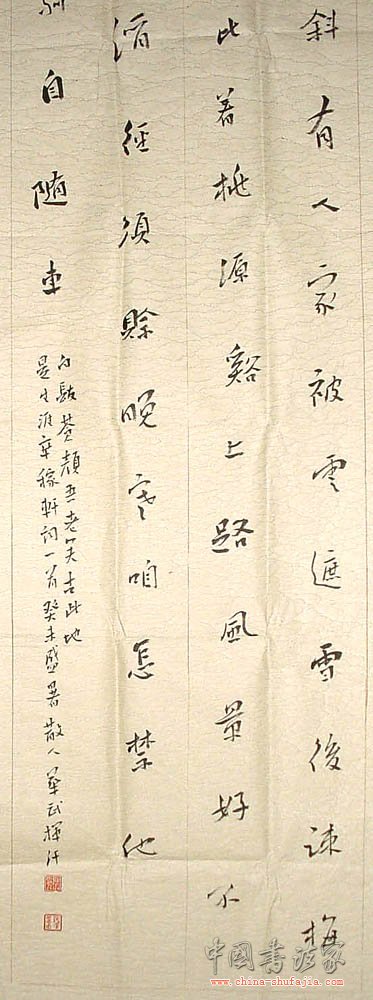 斜有人家被雲遮雪後疎梅
比着桃源谿上路風景好不
酒徑須賒晚寒咱怎禁他
自随車
白髮蒼顏吾老矣只此地
是生涯辛稼軒詞一首癸未盛暑散人華武揮汗
中国書法家
www.china-shufajia.com